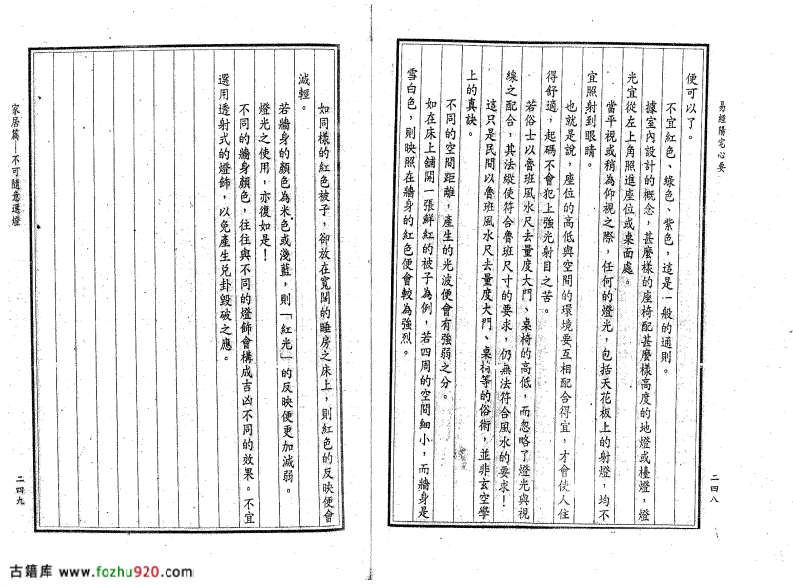 易經陽宅心要
二四八
便可以了。
不宜紅色、綠色、紫色，這是一般的通則。
據室內設計的概念，甚麼樣的座椅配甚麼樣高度的地燈或檯燈，燈
光宜從左上角照進座位或桌面處。
當平視或稍為仰視之際，任何的燈光，包括天花板上的射燈，均不
宜照射到眼睛。
也就是說，座位的高低與空間的環境要互相配合得宜，才會使人住
得舒適，起碼不會犯上強光射目之苦。
若俗士以魯班風水尺去量度大門、桌椅的高低，而忽略了燈光與視
線之配合，其法縱使符合魯班尺寸的要求，仍無法符合風水的要求！
這只是民間以魯班風水尺去量度大門、桌椅等的俗術，並非玄空學
上的真訣。
不同的空間距離，產生的光波便會有強弱之分。
如在床上鋪開一張鮮紅的被子為例，若四周的空間細小，而牆身是
雪白色，則映照在牆身的紅色便會較為強烈。
如同樣的紅色被子，卻放在寬闊的睡房之床上，則紅色的反映便會
減輕。
若牆身的顏色為米色或淺藍，則「紅光」的反映便更加減弱。
燈光之使用，亦復如是！
不同的牆身顏色，往往與不同的燈飾會構成吉凶不同的效果。不宜
選用透射式的燈飾，以免產生兌卦毀破之應。
家居篇—不可隨意選燈
二四九
古籍库 www.fozhu920.com